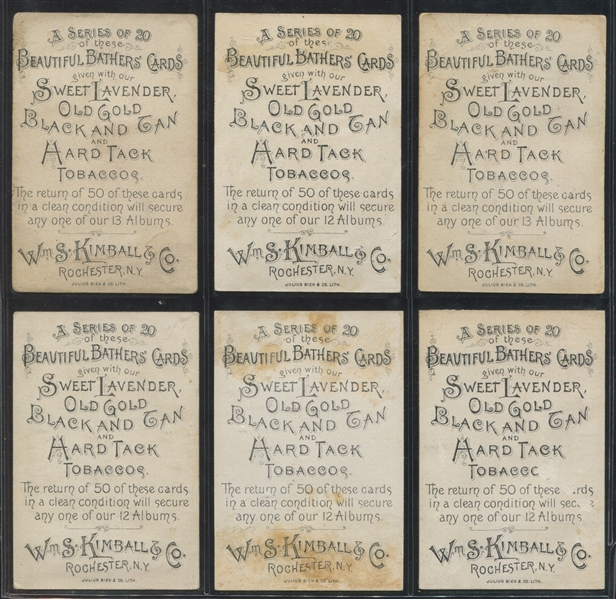 A SERIES OF 20
of these
BEAUTIFUL BATHERS' CARDS
given with our
SWEET LAVENDER,
OLD GOLD
BLACK AND TAN
AND
HARD TACK
TOBACCOS.
The return of 50 of these cards
in a clean condition will secure
any one of our 13 Albums.
WM S. KIMBALL & CO.
ROCHESTER, N.Y.
JULIUS BIEN & CO. LITH.
A SERIES OF 20
of these
BEAUTIFUL BATHERS' CARDS
given with our
SWEET LAVENDER,
OLD GOLD
BLACK AND TAN
AND
HARD TACK
TOBACCOS.
The return of 50 of these cards
in a clean condition will secure
any one of our 12 Albums.
WM S. KIMBALL & CO.
ROCHESTER, N.Y.
JULIUS BIEN & CO. LITH.
A SERIES OF 20
of these
BEAUTIFUL BATHERS' CARDS
given with our
SWEET LAVENDER,
OLD GOLD
BLACK AND TAN
AND
HARD TACK
TOBACCOS.
The return of 50 of these cards
in a clean condition will secure
any one of our 13 Albums.
WM S. KIMBALL & CO.
ROCHESTER, N.Y.
JULIUS BIEN & CO. LITH.
A SERIES OF 20
of these
BEAUTIFUL BATHERS' CARDS
given with our
SWEET LAVENDER,
OLD GOLD
BLACK AND TAN
AND
HARD TACK
TOBACCOS.
The return of 50 of these cards
in a clean condition will secure
any one of our 12 Albums.
WM S. KIMBALL & CO.
ROCHESTER, N.Y.
JULIUS BIEN & CO. LITH.
A SERIES OF 20
of these
BEAUTIFUL BATHERS' CARDS
given with our
SWEET LAVENDER,
OLD GOLD
BLACK AND TAN
AND
HARD TACK
TOBACCOS.
The return of 50 of these cards
in a clean condition will secure
any one of our 12 Albums.
WM S. KIMBALL & CO.
ROCHESTER, N.Y.
JULIUS BIEN & CO. LITH.
A SERIES OF 20
of these
BEAUTIFUL BATHERS' CARDS
given with our
SWEET LAVENDER,
OLD GOLD
BLACK AND TAN
AND
HARD TACK
TOBACC
The return of 50 of these rds
in a clean condition will sec
any one of our 12 Albums.
WM S. KIMBALL & CO.
ROCHESTER, N.Y.
JULIUS BIEN & CO. LITH.